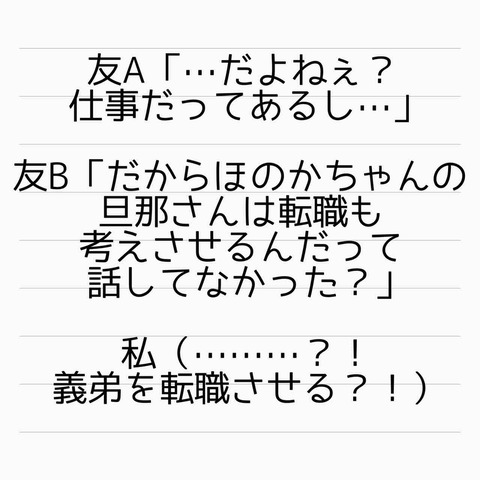 友A「…だよねぇ？
仕事だってあるし…」
友B「だからほのかちゃんの
旦那さんは転職も
考えさせるんだって
話してなかった？」
私（………？！
義弟を転職させる？！）